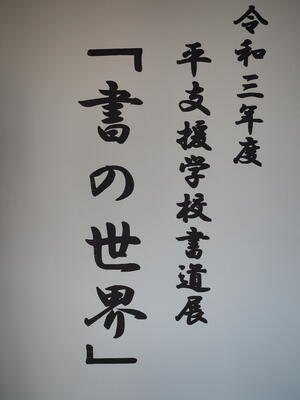 令和三年度
平支援学校書道展
「書の世界」